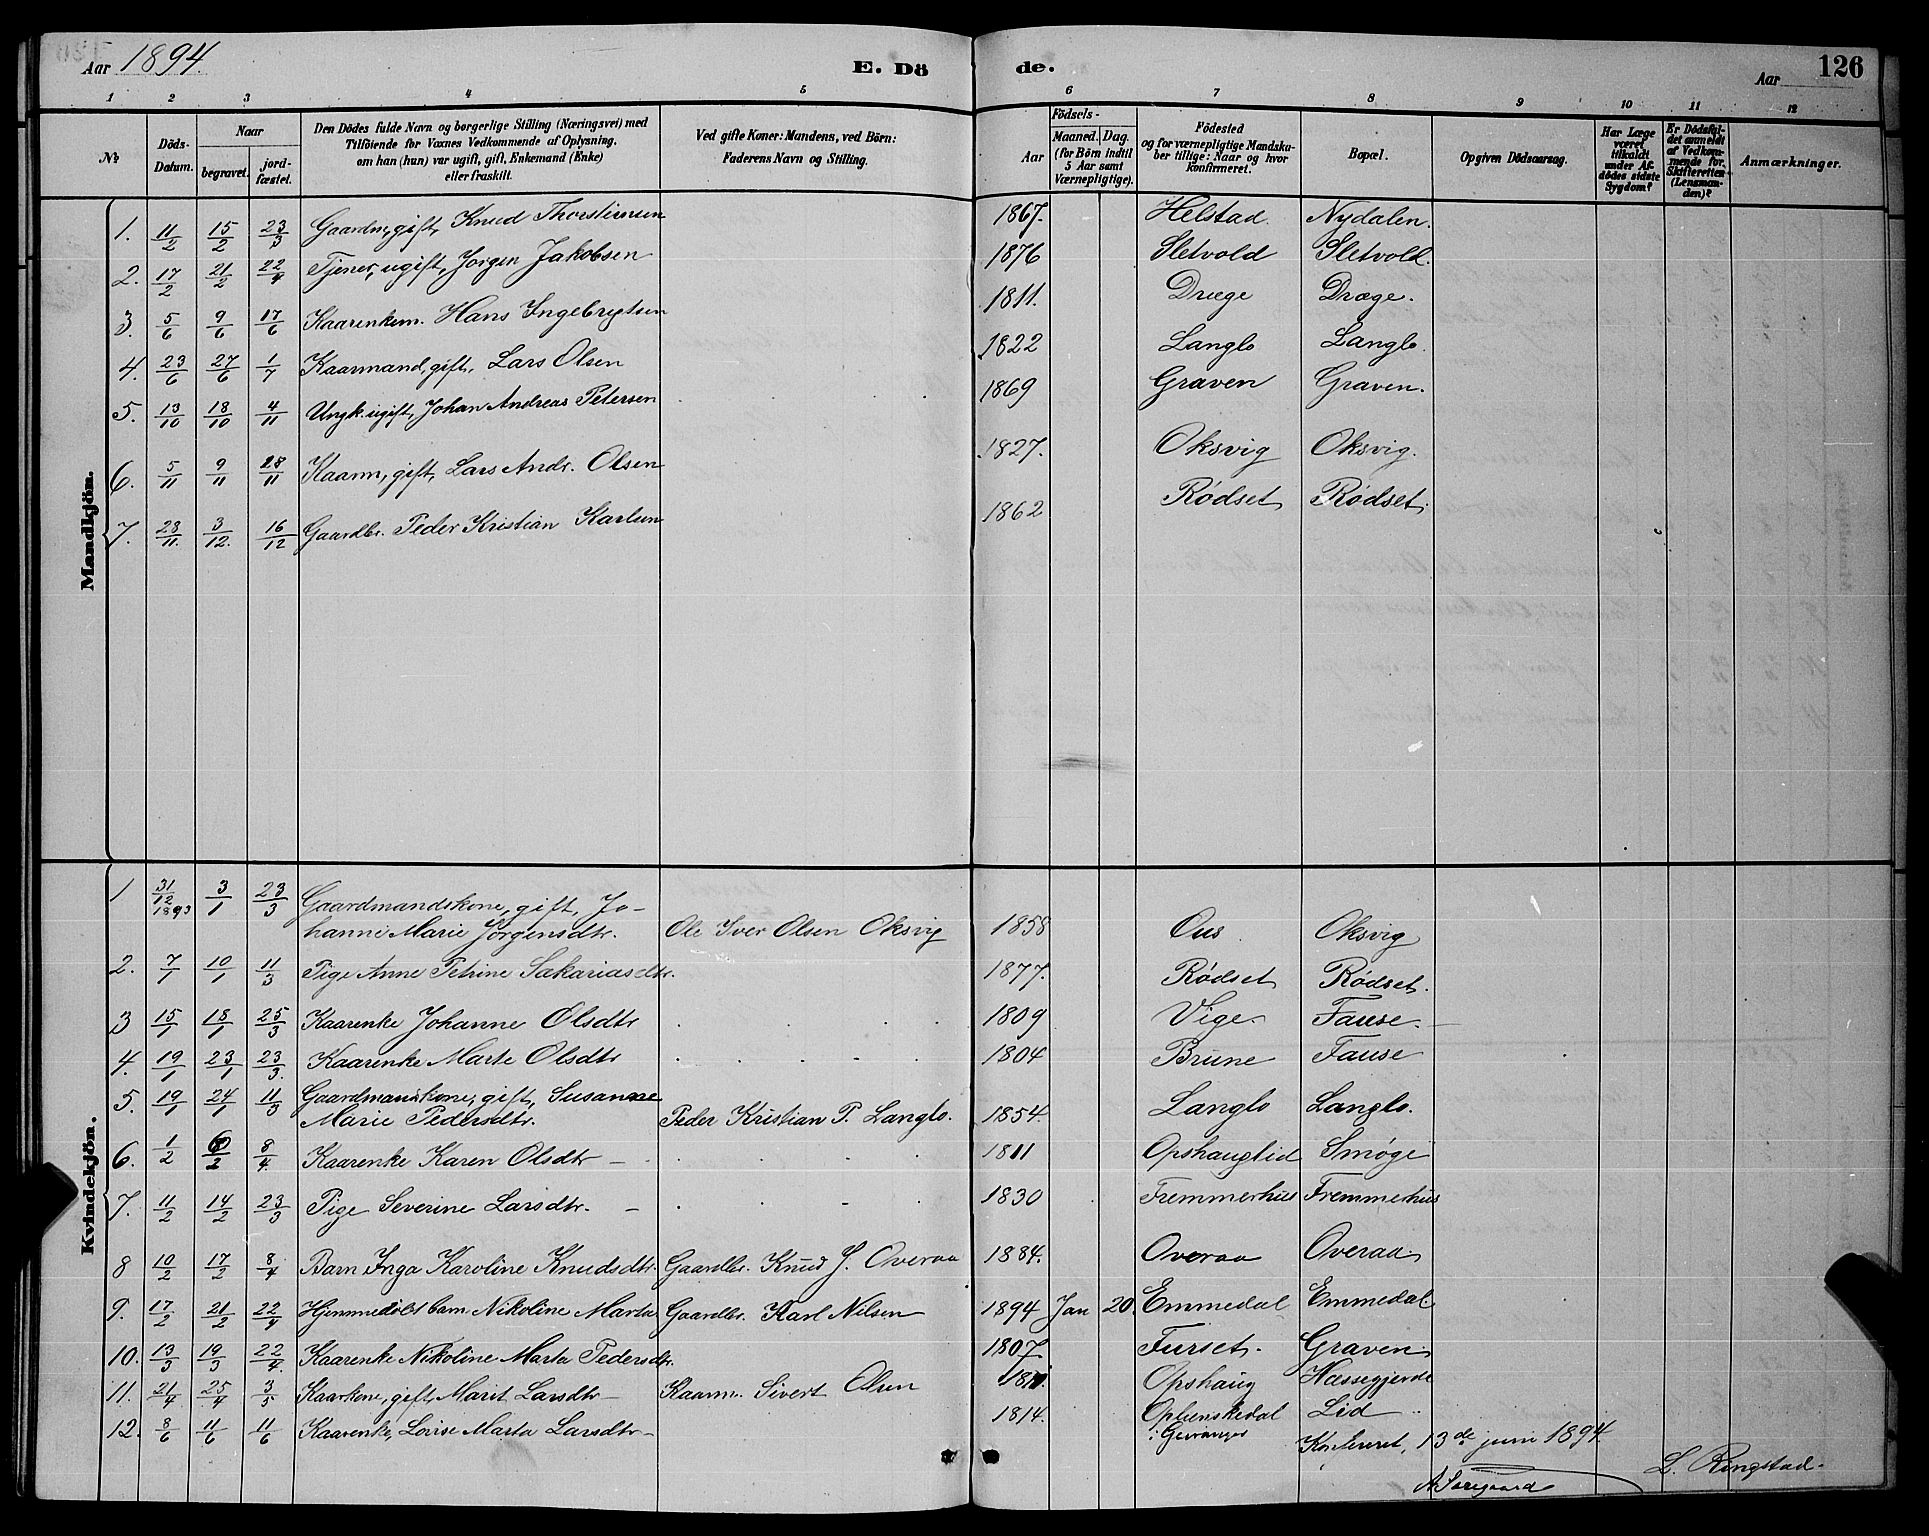 Aar 1894. E. Dö de. Aar 126
1 2 3 4 5 6 7 8 9 10 11 12
No Döds-Datum. Naar begravet. jord-fæstet. Den Dödes fulde Navn og borgerlige Stilling (Næringsvei) med Tilföiende for Voxnes Vedkommende af Oplysning, om han (hun) var ugift, gift, Enkemand (Enke) eller fraskilt. Ved gifte Koner: Mandens, ved Börn: Faderens Navn og Stilling. Födsels- Aar Maaned. Dag. (for Börn indtil 5 Aar samt Værnepligtige). Födested og for værnepligtige Mandskaber tillige: Naar og hvor konfirmeret. Bopæl. Opgiven Dödsaarsag. Har Læge været tilkaldt under Afdödes sidste Sygdom? Er Dödsfaldet anmeldt af Vedkommende for Skifteretten (Lensmanden)? Anmærkninger.
Mandkjön.
1. 11/2 15/2 23/3 Gaardm, gift, Knud Thorstensen 1867. Helstad. Nydalen.
2. 17/2 21/2 22/4 Tjener, ugift, Jorgen Jakobsen 1876 Sletvold Sletvold.
3. 5/6 9/6 17/6 Kaarenkem. Hans Ingebrigtsen 1811. Dræge Dræge.
4. 23/6 27/6 1/7 Kaarmand, gift, Lars Olsen 1822 Langlo Langlo.
5. 13/10 18/10 4/11 Ungk. ugift, Johan Andreas Petersen 1869 Graven Graven.
6. 5/11 9/11 28/11 Kaarm, gift, Lars Andr. Olsen 1827. Oksvig Oksvig.
7. 28/11. 3/12. 16/12 Gaardbr. Peder Kristian Karlsen 1862 Rödset Rödset.
Kvindekjön.
1 31/12 1893 3/1 23/3 Gaardmandskone, gift, Jo-
hanne Marie Jörgensdtr. Ole Iver Olsen Oksvig 1858 Ous Oksvig
2. 7/1 10/1 11/3 Pige Anne Petrine Sakariasdtr. 1877. Rödset Rödset.
3 15/1 18/1 25/3 Kaarenke Johanne Olsdtr 1809 Vige. Fause.
4. 19/1 23/1 23/3. Kaarenke Marte Olsdtr 1804 Brune Fause
5. 19/1 24/1 11/3 Gaardmandskone, gift, Susanne
Marie Pedersdtr. Peder Kristian P. Langlo. 1854. Langlo Langlo.
6. 1/2 6/2 8/4 Kaarenke Karen Olsdtr 1811 Opshauglid Smöge
7. 11/2 14/2 23/3 Pige Severine Larsdtr. 1830 Fremmerhus Fremmerhus
8 10/2 17/2 8/4 Barn Inga Karoline Knudsdtr. Gaardbr. Knud J. Overaa 1884. Overaa Overaa.
9. 17/2 21/2 22/4 Hjemmedöbt barn Nikoline Marta Gaardbr. Karl Nilsen 1894 Jan 20 Emmedal Emmedal
10. 13/3 19/3 22/4. Kaarenke Nikoline Marta Pedersdtr. 1807 Furset. Graven.
11. 21/4 25/4 3/5 Kaarkone, gift, Marit Larsdtr Kaarm. Sivert Olsen Opshaug Hæssegjerde
12. 8/6 11/6 11/6 Kaarenke, Lovise Marta Larsdtr 1814. Lid
i Geiranger
Konfereret, 13de juni 1894.
L. Ringstad.